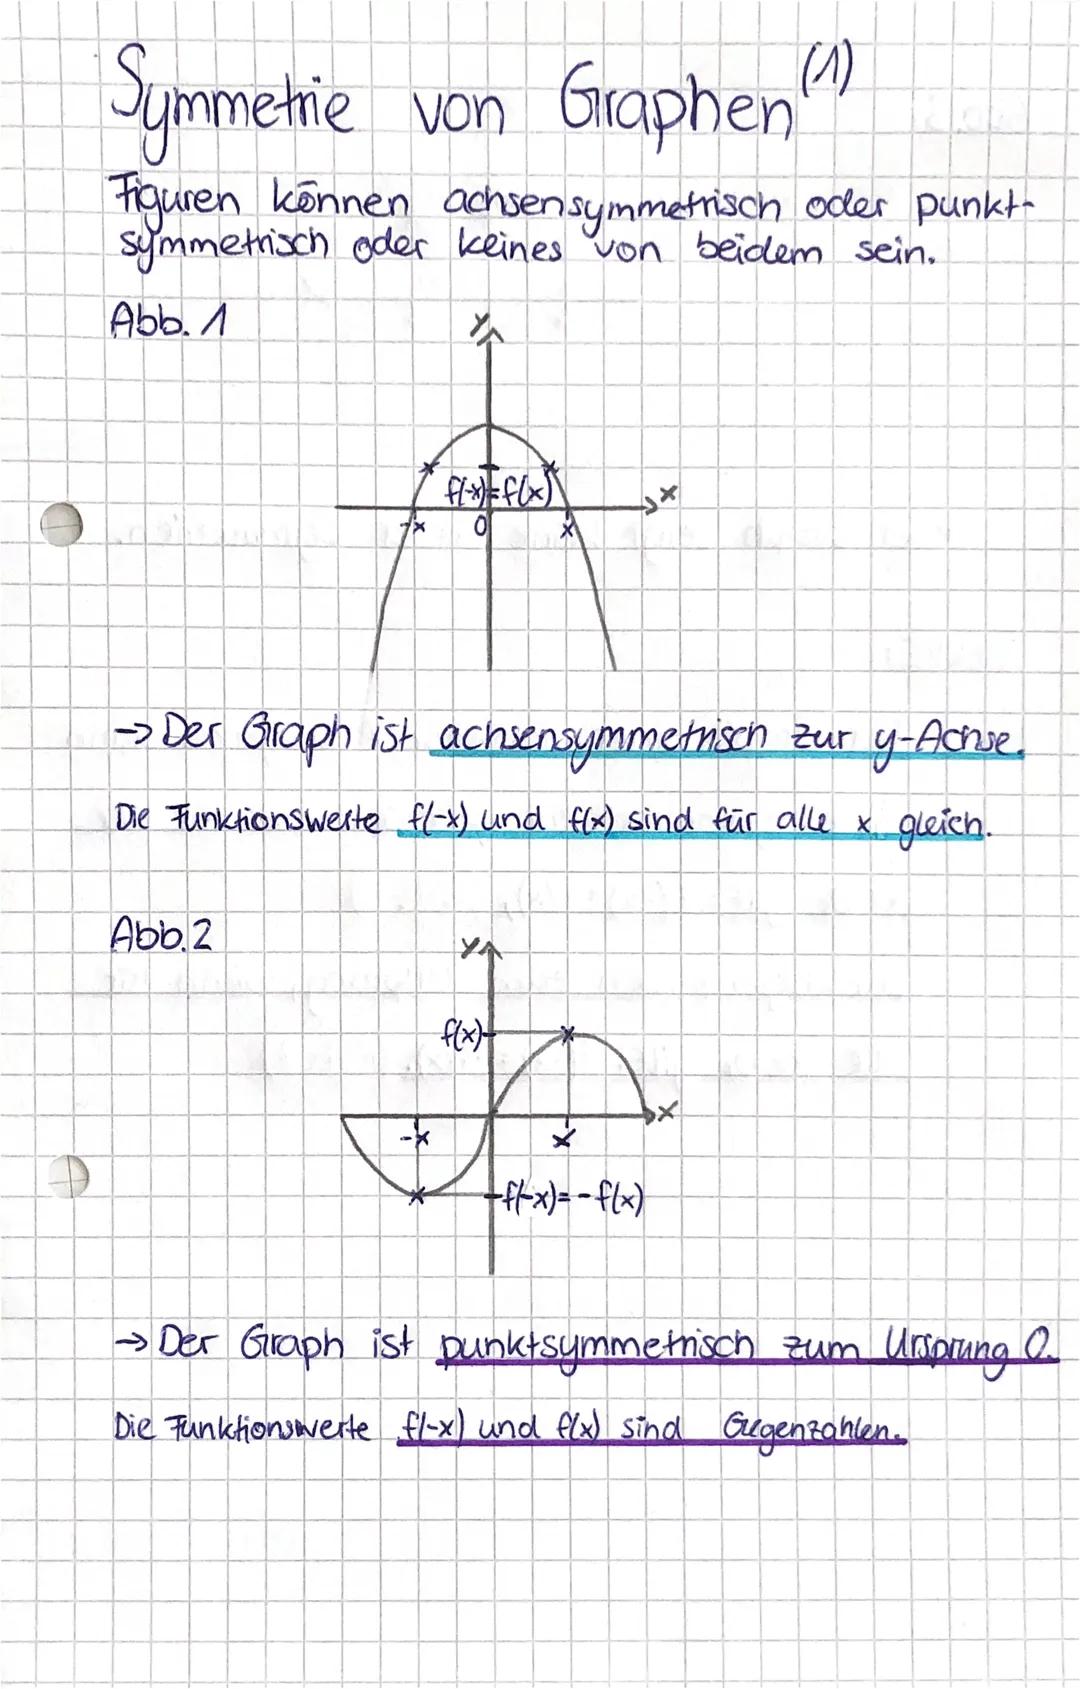 Symmetrie von Graphen (1)
Figuren können achsensymmetrisch oder punkt-
symmetrisch oder keines von beidem sein.
Abb. 1
y
f(-x)=f(x)
x
-x 0 x
→ Der Graph ist achsensymmetrisch zur y-Achse.
Die Funktionswerte f(-x) und f(x) sind für alle x gleich.
Abb. 2
y
f(x)
x
-x x
f(-x)=-f(x)
→ Der Graph ist punktsymmetrisch zum Ursprung 0.
Die Funktionswerte f(-x) und f(x) sind Gegenzahlen.